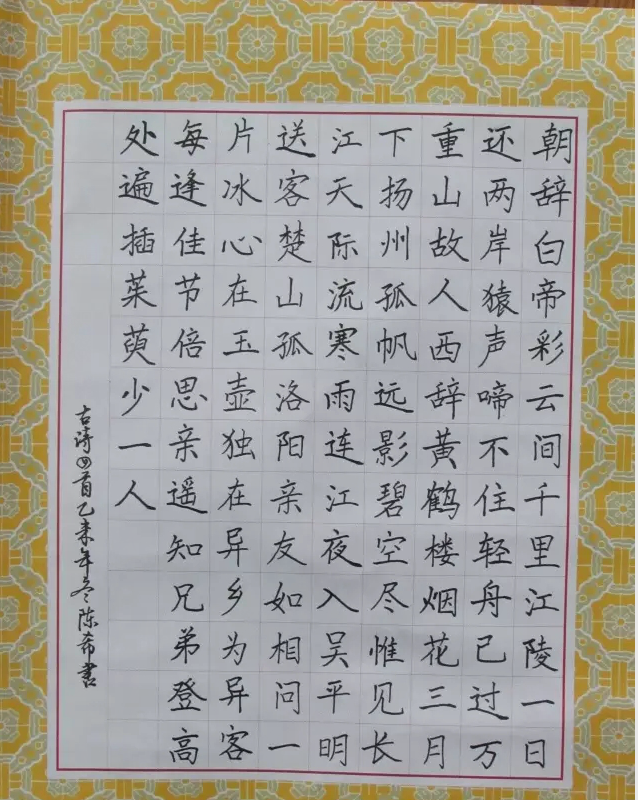 朝辞白帝彩云间千里江陵一日
还两岸猿声啼不住轻舟已过万
重山故人西辞黄鹤楼烟花三月
下扬州孤帆远影碧空尽惟见长
江天际流寒雨连江夜入吴平明
送客楚山孤洛阳亲友如相问一
片冰心在玉壶独在异乡为异客
每逢佳节倍思亲遥知兄弟登高
处遍插茱萸少一人
古诗四首乙未年冬陈希書